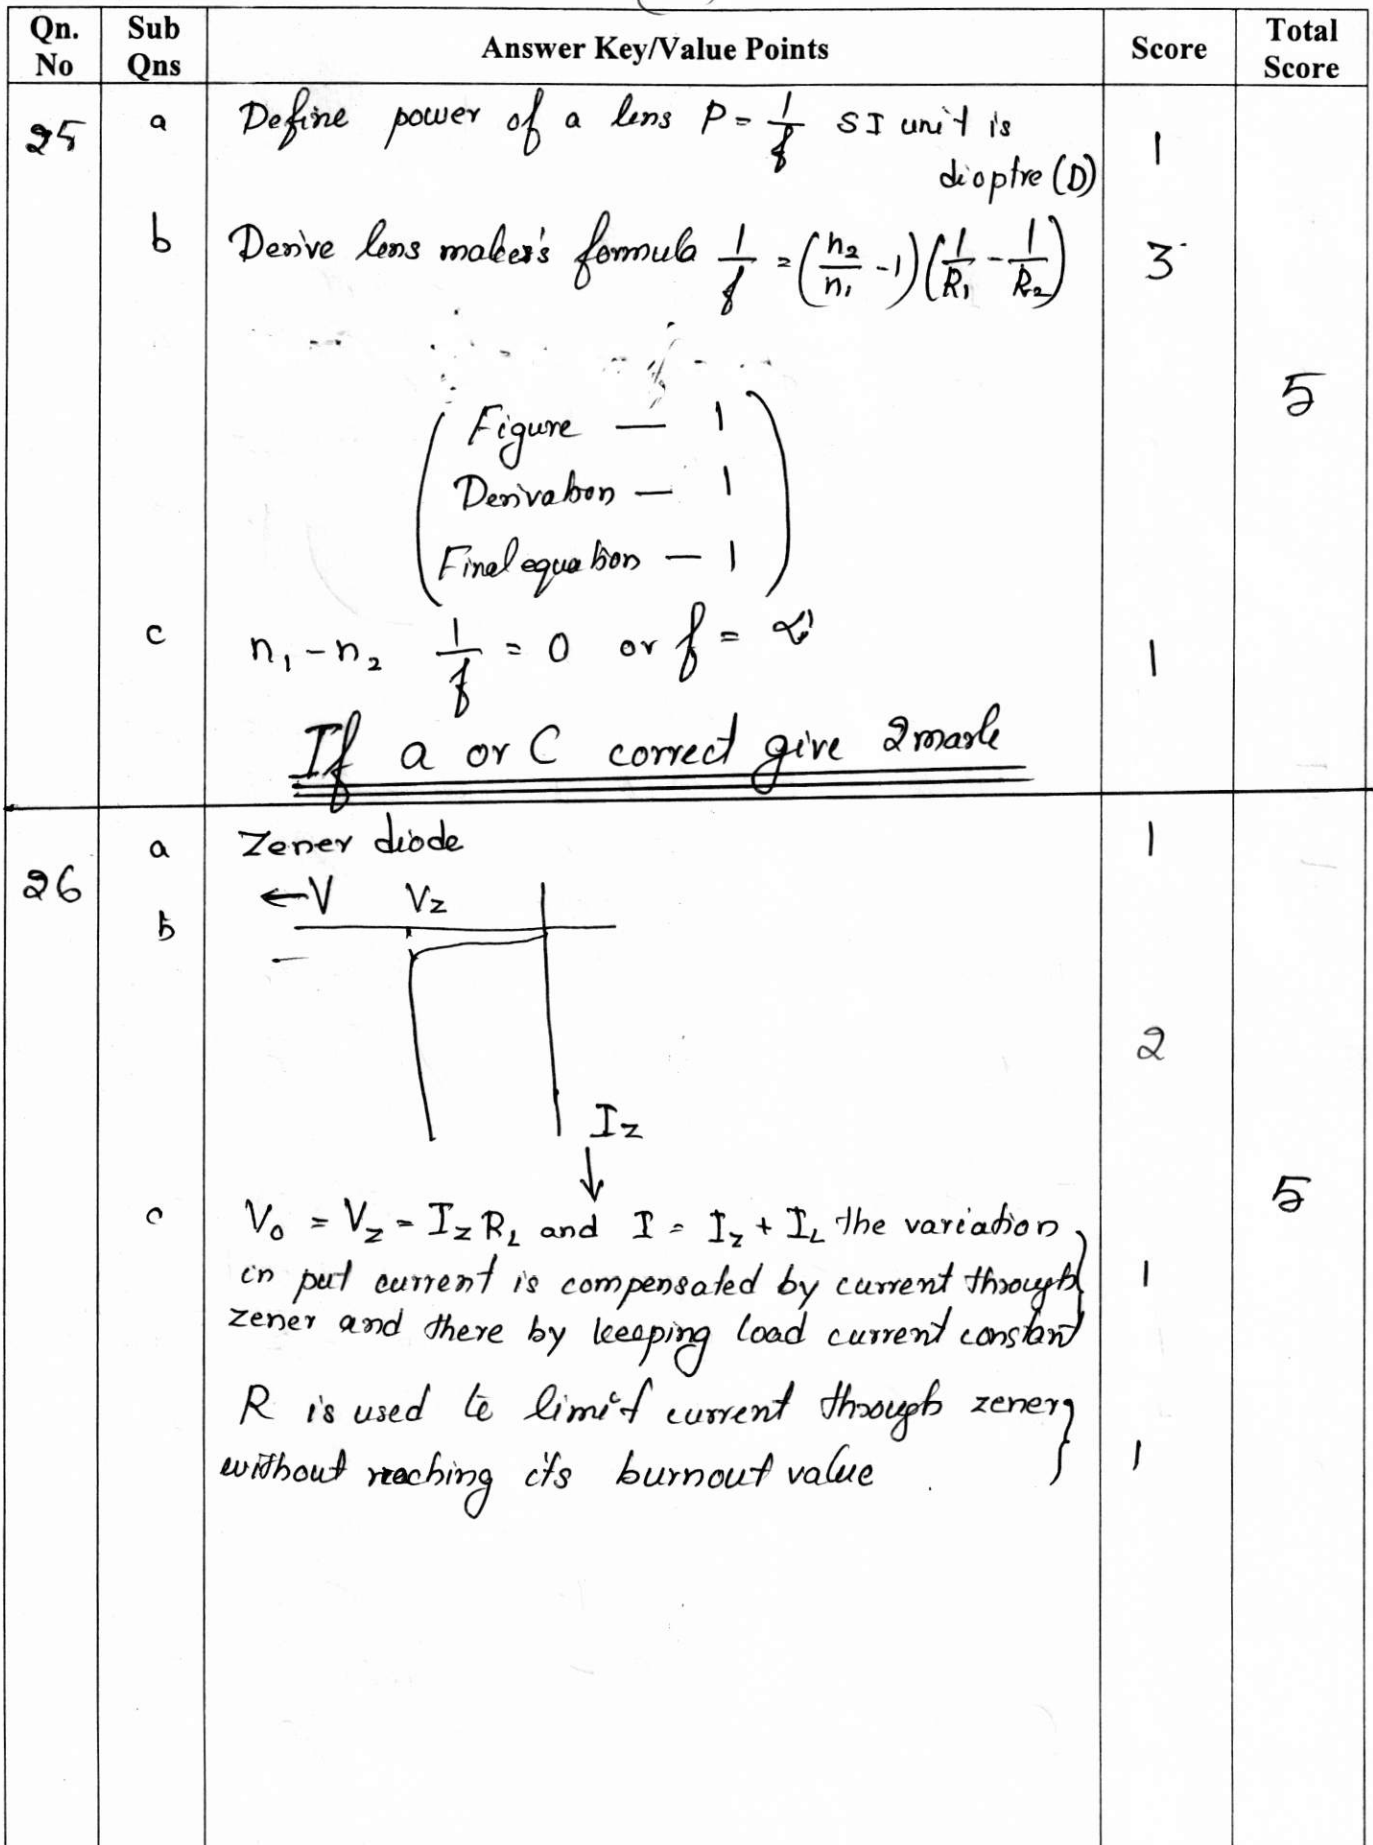 Qn. No Sub Qns Answer Key/Value Points Score Total Score
25 a Define power of a lens P = 1/f SI unit is 1
dioptre (D)
b Derive lens maker's formula 1/f = (n₂/n₁ - 1)(1/R₁ - 1/R₂) 3
5
Figure — 1
Derivation — 1
Final equation — 1
c n₁ - n₂ 1/f = 0 or f = ∝ 1
If a or C correct give 2mark
26 a Zener diode 1
b ←V Vz
2
Iz
↓
5
c V₀ = Vz - Iz R_L and I = Iz + I_L the variation
in put current is compensated by current through 1
zener and there by keeping load current constant
R is used to limit current through zener
without reaching its burnout value 1